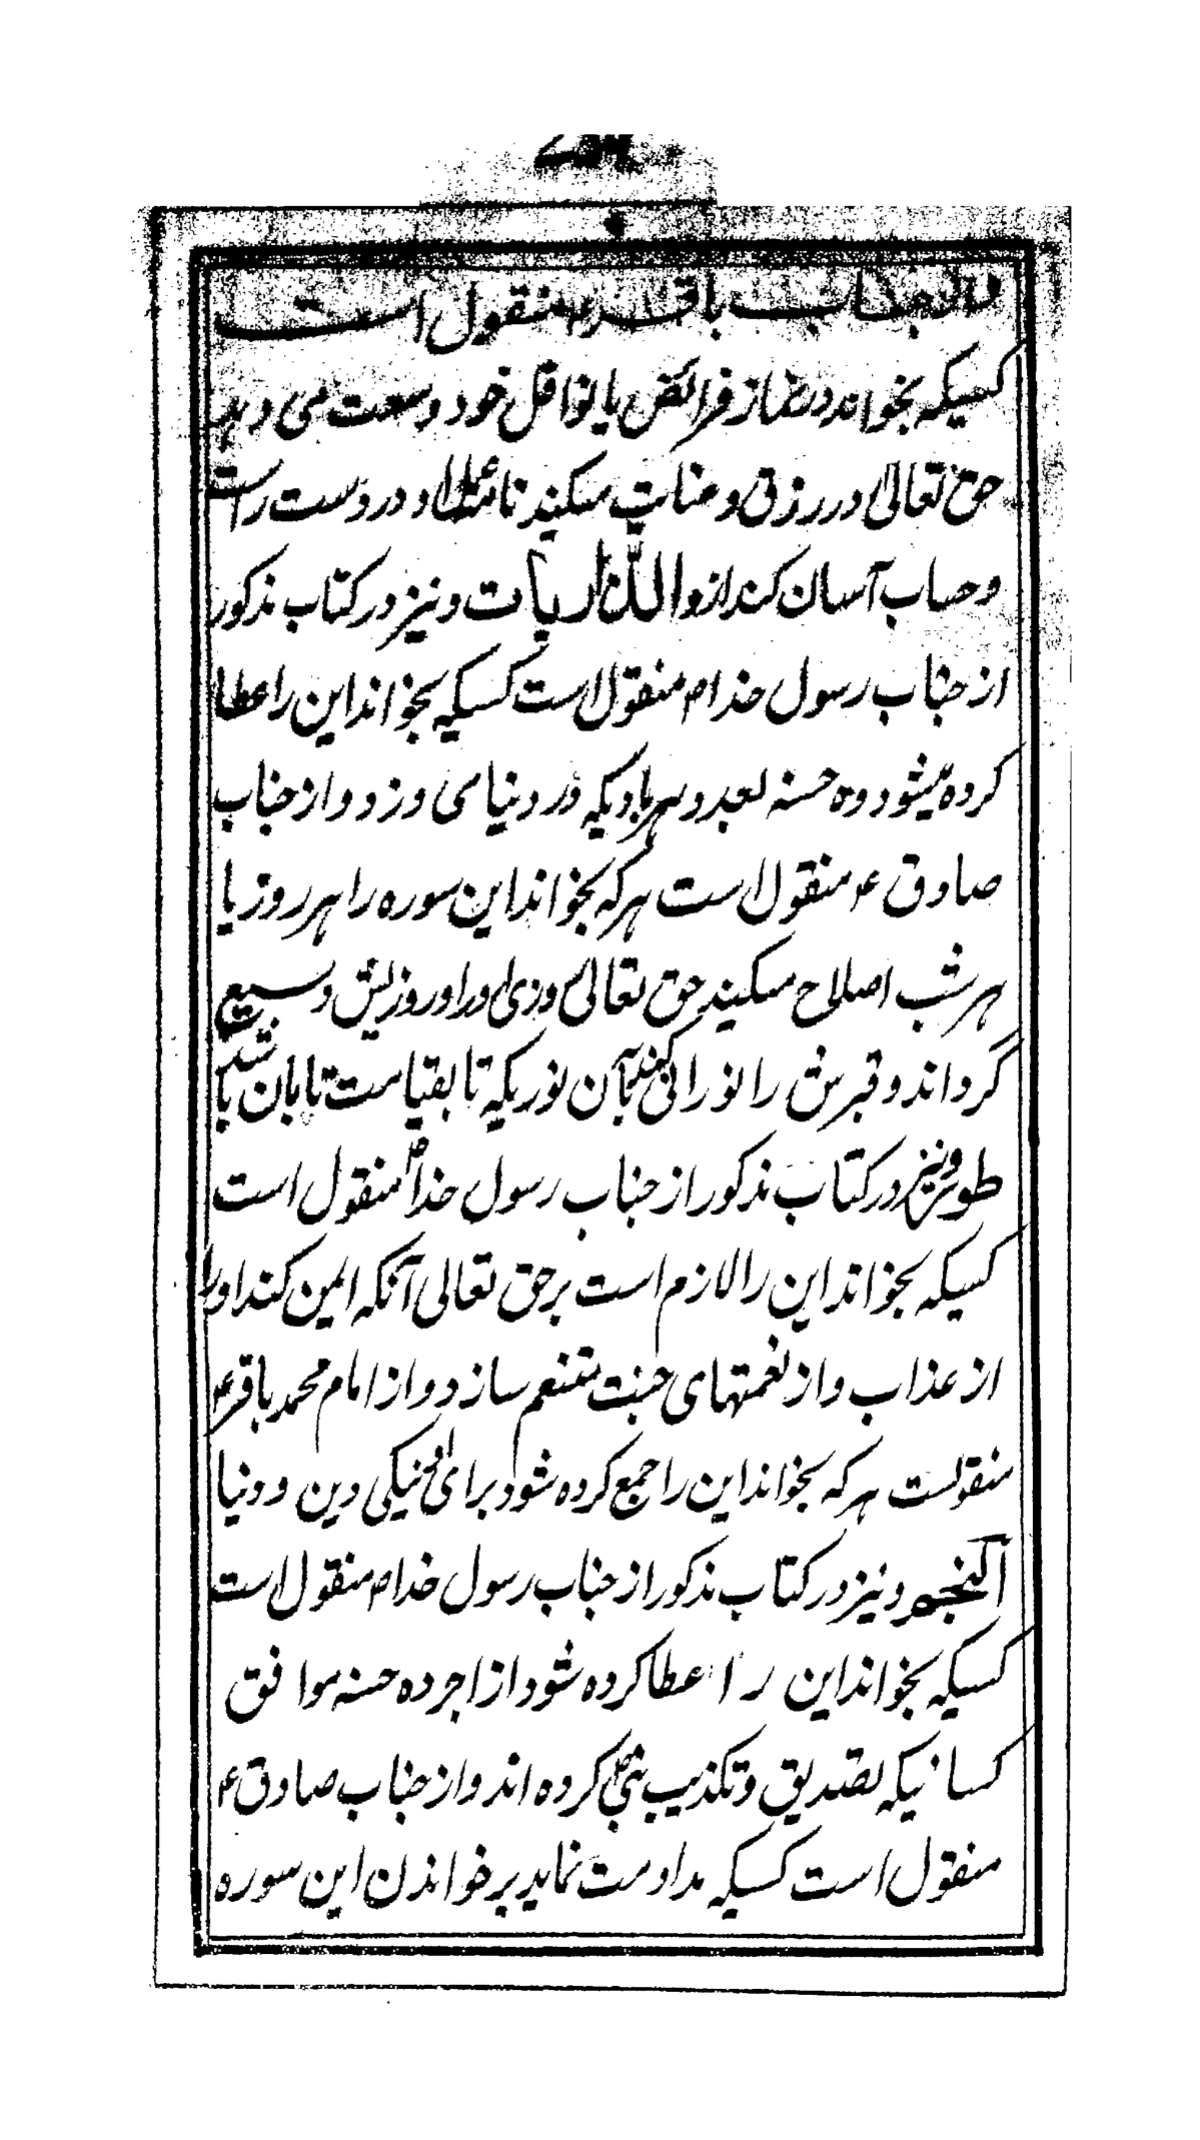 و از جناب باقر ع منقول است
کسیکه بخواند در نماز فرائض یا نوافل خود وسعت می دهد
حق تعالیٰ در رزق و عنایت میکند نامئه اعمال او در دست راست
و حساب آسان کند ازو الذاریات و نیز در کتاب مذکور
از جناب رسول خدا م منقول است کسیکه بخواند این را عطا
کرده میشود ده حسنه بعدد هر بادیکه در دنیا می وزد و از جناب
صادق ع منقول است هر که بخواند این سوره را هر روز یا
هر شب اصلاح میکند حق تعالیٰ روزی او را و روزیش وسیع
گرداند و قبرش را نورانی کند بآن نوریکه تا بقیامت تابان باشد
طور و نیز در کتاب مذکور از جناب رسول خدا ص منقول است
کسیکه بخواند این را لازم است بر حق تعالی آنکه ایمن کند او را
از عذاب و از نعمتهای جنت متنعم سازد و از امام محمد باقر ع
منقولست هر که بخواند این را جمع کرده شود برای او نیکی دین و دنیا
النجم و نیز در کتاب مذکور از جناب رسول خدا م منقول است
کسیکه بخواند این را عطا کرده شود از اجر ده حسنه موافق
کسانیکه تصدیق و تکذیب نبی کرده اند و از جناب صادق ع
منقول است کسیکه مداومت نماید بر خواندن این سوره